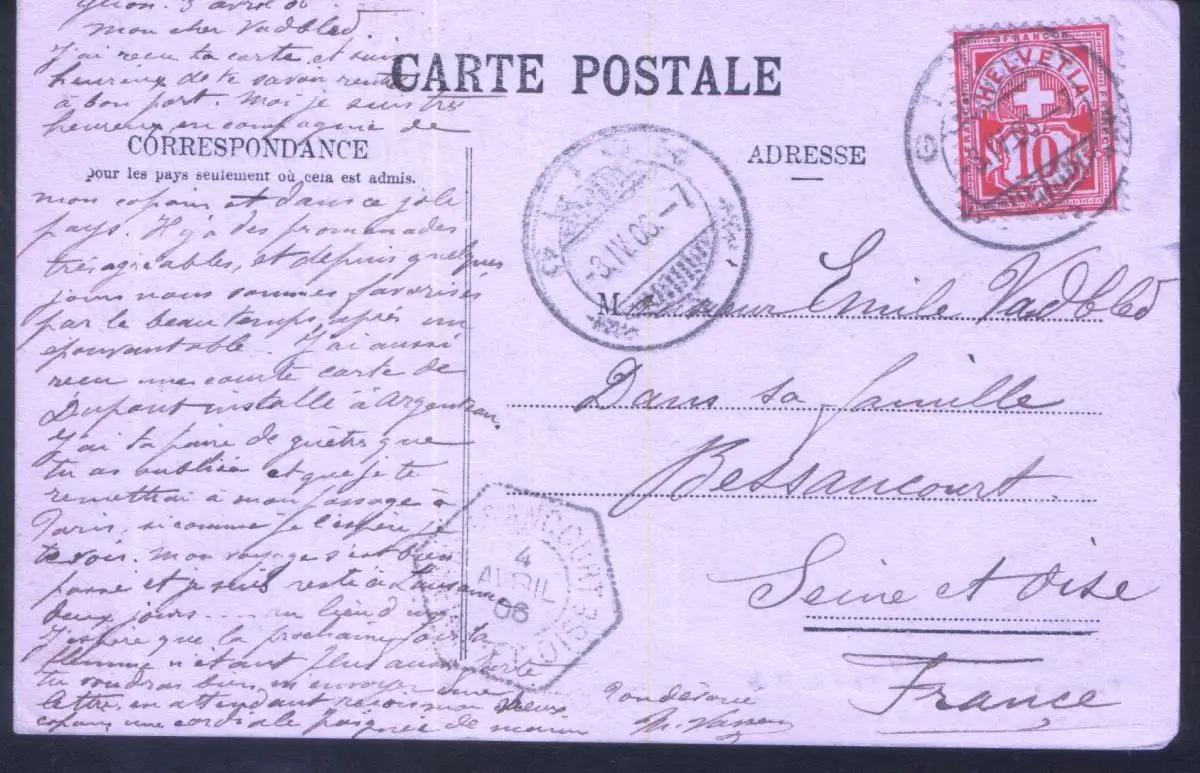 Glion. 3 avril 06
Mon cher Vadbled
J'ai reçu ta carte et suis
heureux de te savoir rentré
à bon port. Moi je suis très
heureux en compagnie de
CARTE POSTALE
CORRESPONDANCE
pour les pays seulement où cela est admis.
mon copain et dans ce joli
pays. Il y a des promenades
très agréables, et depuis quelques
jours nous sommes favorisés
par le beau temps, après un
épouvantable. J'ai aussi
reçu une courte carte de
Dupont installé à Argenteau.
J'ai ta paire de guêtres que
tu as oubliée et que je te
remettrai à mon passage à
Paris, si comme je l'espère je
te vois. Mon voyage s'est bien
passé et je suis resté à Lausanne
deux jours .... au lieu d'un
J'espère que la prochaine fois ta
flemme n'étant plus aussi forte
tu voudras bien m'envoyer une
lettre, en attendant reçois mon vieux
copain une cordiale poignée de main
Ton dévoué
ADRESSE
Monsieur Emile Vadbled
Dans sa famille
Bessancourt
Seine et Oise
France
FRANCO
HELVETIA
10
GLION
-3.IV.06.-7
BESSANCOURT
4
AVRIL
06